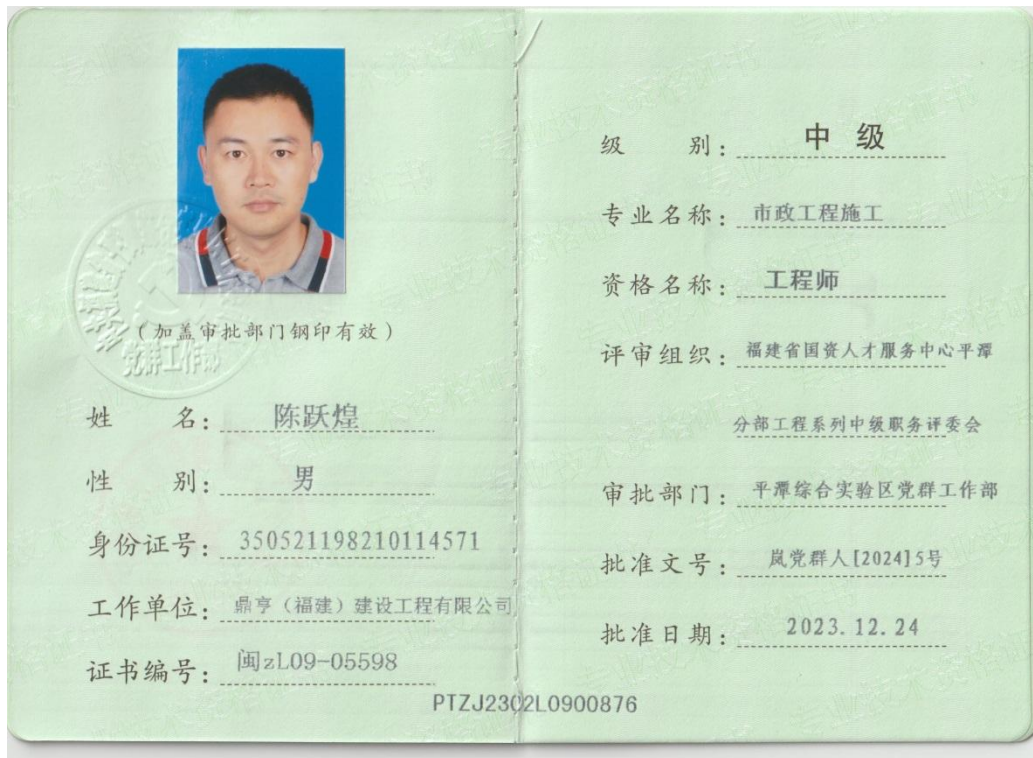 (加盖审批部门钢印有效)
党群工作部
姓 名：陈跃煌
性 别：男
身份证号：350521198210114571
工作单位：鼎亨（福建）建设工程有限公司
证书编号：闽zL09-05598
级 别：中 级
专业名称：市政工程施工
资格名称：工程师
评审组织：福建省国资人才服务中心平潭
分部工程系列中级职务评委会
审批部门：平潭综合实验区党群工作部
批准文号：岚党群人[2024]5号
批准日期：2023.12.24
PTZJ2302L0900876